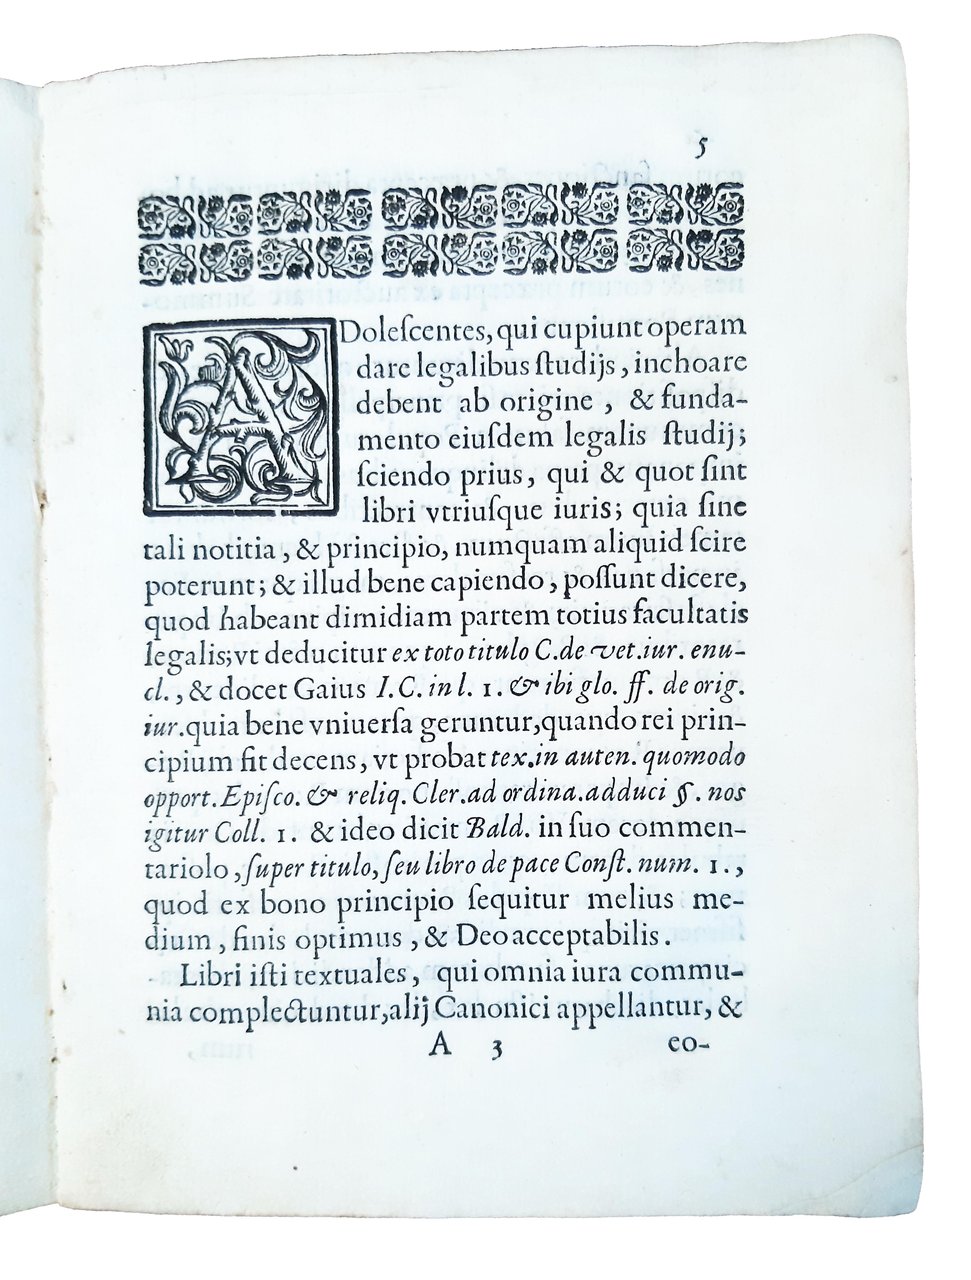 5
ADoleſcentes, qui cupiunt operam
dare legalibus ſtudijs, inchoare
debent ab origine, & funda-
mento eiuſdem legalis ſtudij;
ſciendo prius, qui & quot ſint
libri vtriuſque iuris; quia ſine
tali notitia, & principio, numquam aliquid ſcire
poterunt; & illud bene capiendo, poſſunt dicere,
quod habeant dimidiam partem totius facultatis
legalis; vt deducitur ex toto titulo C. de vet. iur. enu-
cl., & docet Gaius I. C. in l. 1. & ibi glo. ff. de orig.
iur. quia bene vniuerſa geruntur, quando rei prin-
cipium fit decens, vt probat tex. in auten. quomodo
opport. Epiſco. & reliq. Cler. ad ordina. adduci §. nos
igitur Coll. 1. & ideo dicit Bald. in ſuo commen-
tariolo, ſuper titulo, ſeu libro de pace Conſt. num. 1.,
quod ex bono principio ſequitur melius me-
dium, finis optimus, & Deo acceptabilis.
Libri iſti textuales, qui omnia iura commu-
nia complectuntur, alij Canonici appellantur, &
A 3 co-